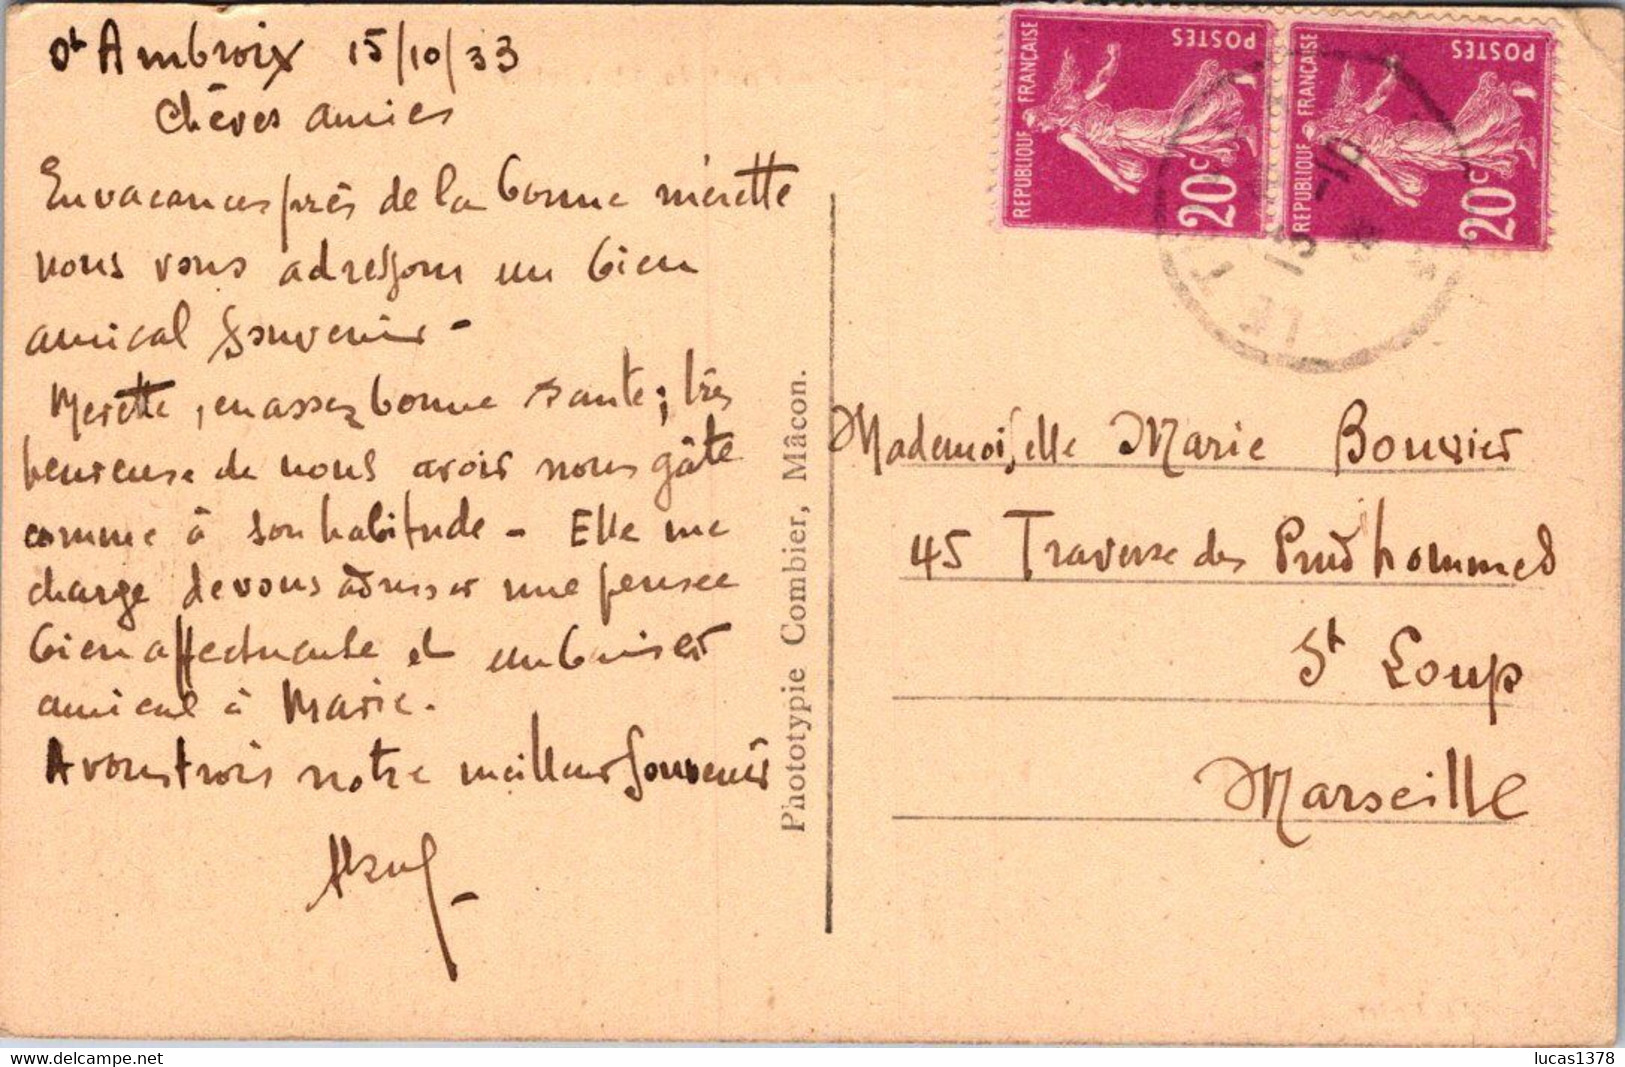 St Ambroix 15/10/33
Chères amies
En vacances près de la bonne mérette
nous vous adressons un bien
amical souvenir -
Merette, en assez bonne sante; très
heureuse de nous avoir nous gâte
comme à son habitude - Elle me
charge de vous adresser une pensee
bien affectueuse et un baiser
amical à Marie.
A vous trois notre meilleur souvenir
Phototypie Combier, Mâcon.
REPUBLIQUE FRANÇAISE
POSTES
20c
REPUBLIQUE FRANÇAISE
POSTES
20c
15 -10
Mademoiselle Marie Bouvier
45 Traverse des Prud'hommes
St Loup
Marseille
delcampe.net
lucas1378